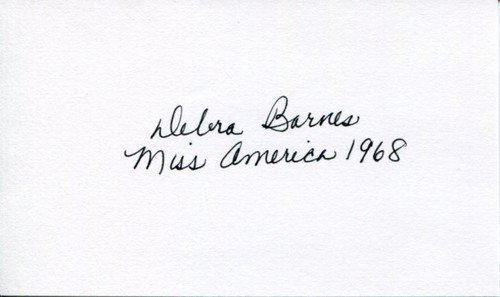 Debra Barnes
Miss America 1968